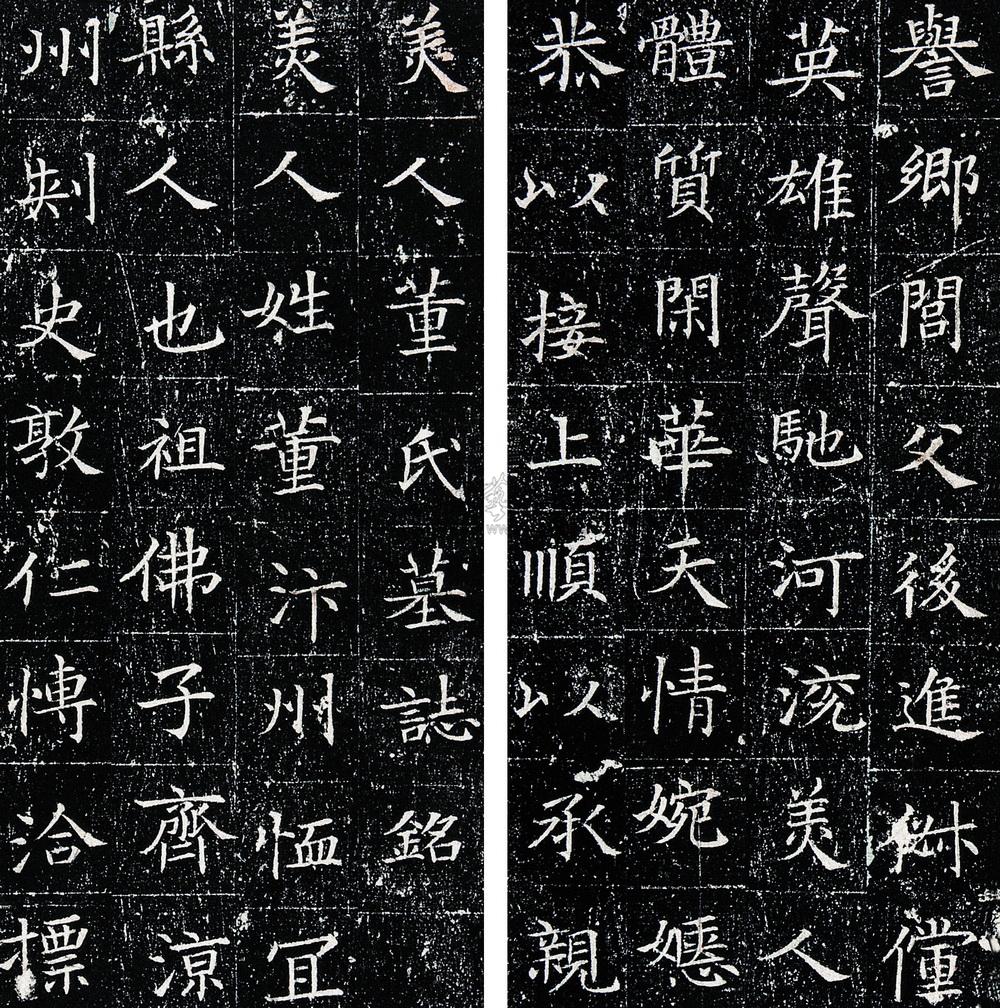 美人董氏墓誌銘
美人姓董汴州恤冝
縣人也祖佛子齊涼
州刾史敦仁愽洽標
譽鄉閭父後進俶儻
英雄聲馳河渷美人
體質閑華天情婉嫕
恭以接上順以承親